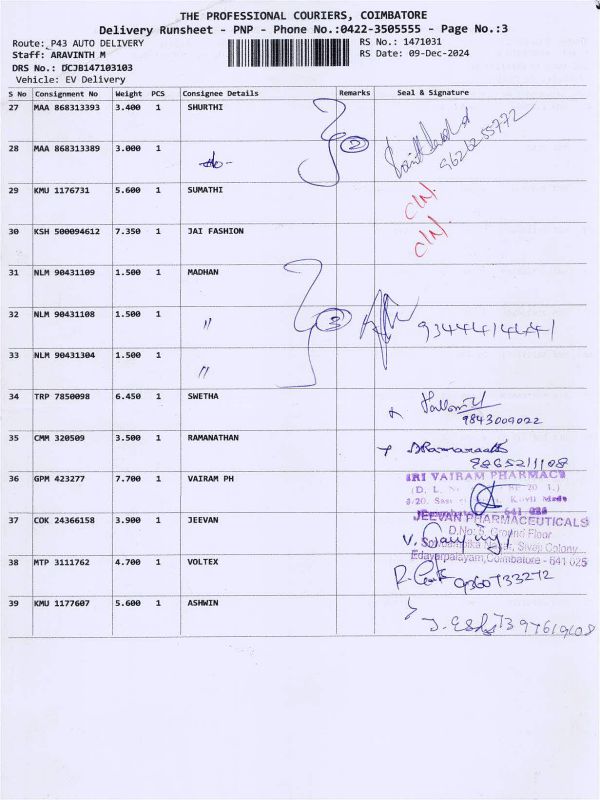 THE PROFESSIONAL COURIERS, COIMBATORE
Delivery Runsheet - PNP - Phone No.:0422-3505555 - Page No.:3
Route: P43 AUTO DELIVERY RS No.: 1471031
Staff: ARAVINTH M RS Date: 09-Dec-2024
DRS No.: DCJB147103103
Vehicle: EV Delivery
S No Consignment No Weight PCS Consignee Details Remarks Seal & Signature
27 MAA 868313393 3.400 1 SHURTHI
2 9626255772
28 MAA 868313389 3.000 1 -do-
29 KMU 1176731 5.600 1 SUMATHI C/N.
30 KSH 500094612 7.350 1 JAI FASHION C/N.
31 NLM 90431109 1.500 1 MADHAN
32 NLM 90431108 1.500 1 " 3
33 NLM 90431304 1.500 1 "
34 TRP 7850098 6.450 1 SWETHA
9843009022
35 CMM 320509 3.500 1 RAMANATHAN
9865211108
36 GPM 423277 7.700 1 VAIRAM PH SRI VAIRAM PHARMACY
641 025
37 COK 24366158 3.900 1 JEEVAN JEEVAN PHARMACEUTICALS
D.No: 5, Ground Floor
Nagar, Sivaji Colony
Edayarpalayam, Coimbatore - 641 025
38 MTP 3111762 4.700 1 VOLTEX
9360733272
39 KMU 1177607 5.600 1 ASHWIN
7397619608